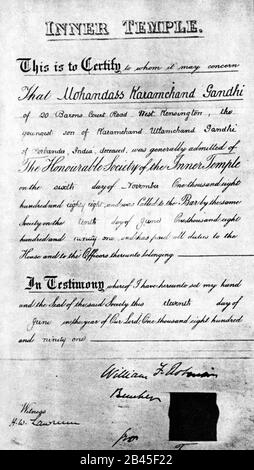 INNER TEMPLE.
This is to Certify to whom it may concern
That Mohandass Karamchand Gandhi
of 20 Barons Court Road West Kensington, the
youngest son of Karamchand Uttamchand Gandhi
of Porbandar, India, deceased, was generally admitted of
The Honourable Society of the Inner Temple
on the sixth day of November One thousand eight
hundred and eighty eight, and was Called to the Bar by the same
Society on the tenth day of June One thousand eight
hundred and ninety one, and has paid all duties to the
House and to the Officers thereunto belonging
In Testimony whereof I have hereunto set my hand
and the Seal of the said Society this eleventh day of
June in the year of Our Lord One thousand eight hundred
and ninety one.
William F.
Bencher
Witness
H.W. Lawrence
alamy
Image ID: 2B45F22
www.alamy.com